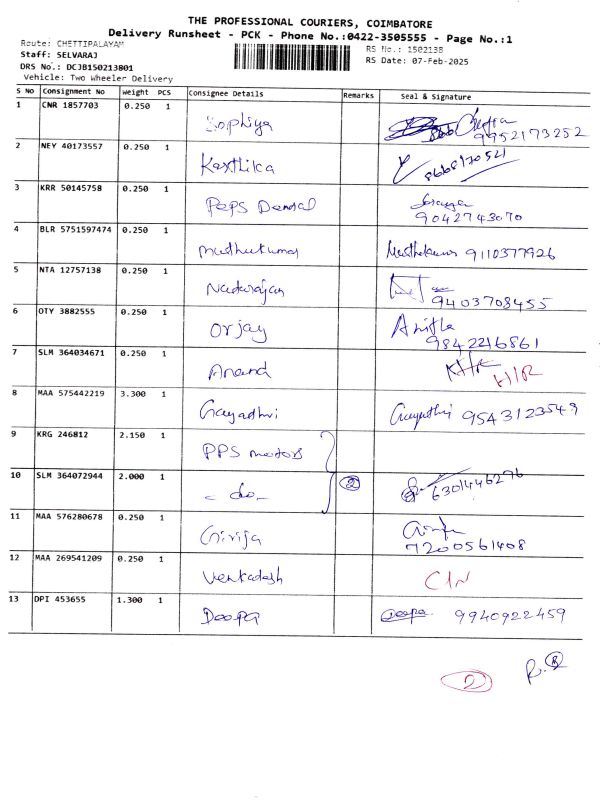 THE PROFESSIONAL COURIERS, COIMBATORE
Delivery Runsheet - PCK - Phone No.:0422-3505555 - Page No.:1
Route: CHETTIPALAYAM RS No.: 1502138
Staff: SELVARAJ RS Date: 07-Feb-2025
DRS No.: DCJB150213801
Vehicle: Two Wheeler Delivery
S No Consignment No Weight PCS Consignee Details Remarks Seal & Signature
1 CNR 1857703 0.250 1 Sophiya 9952173252
2 NEY 40173557 0.250 1 Karthika 8668170521
3 KRR 50145758 0.250 1 Peps Dental 9042743070
4 BLR 5751597474 0.250 1 Muthukumar Muthukumar 9110377926
5 NTA 12757138 0.250 1 Nadarajan 9403708455
6 OTY 3882555 0.250 1 Orjay Anitha 9842216861
7 SLM 364034671 0.250 1 Anand H/R
8 MAA 575442219 3.300 1 Gayathri Gayathri 9543123549
9 KRG 246812 2.150 1 PPS motors
10 SLM 364072944 2.000 1 - do - 2 6301446276
11 MAA 576280678 0.250 1 Girija 7200561408
12 MAA 269541209 0.250 1 Venkadesh C/N
13 DPI 453655 1.300 1 Deepa Deepa 9940922459
2